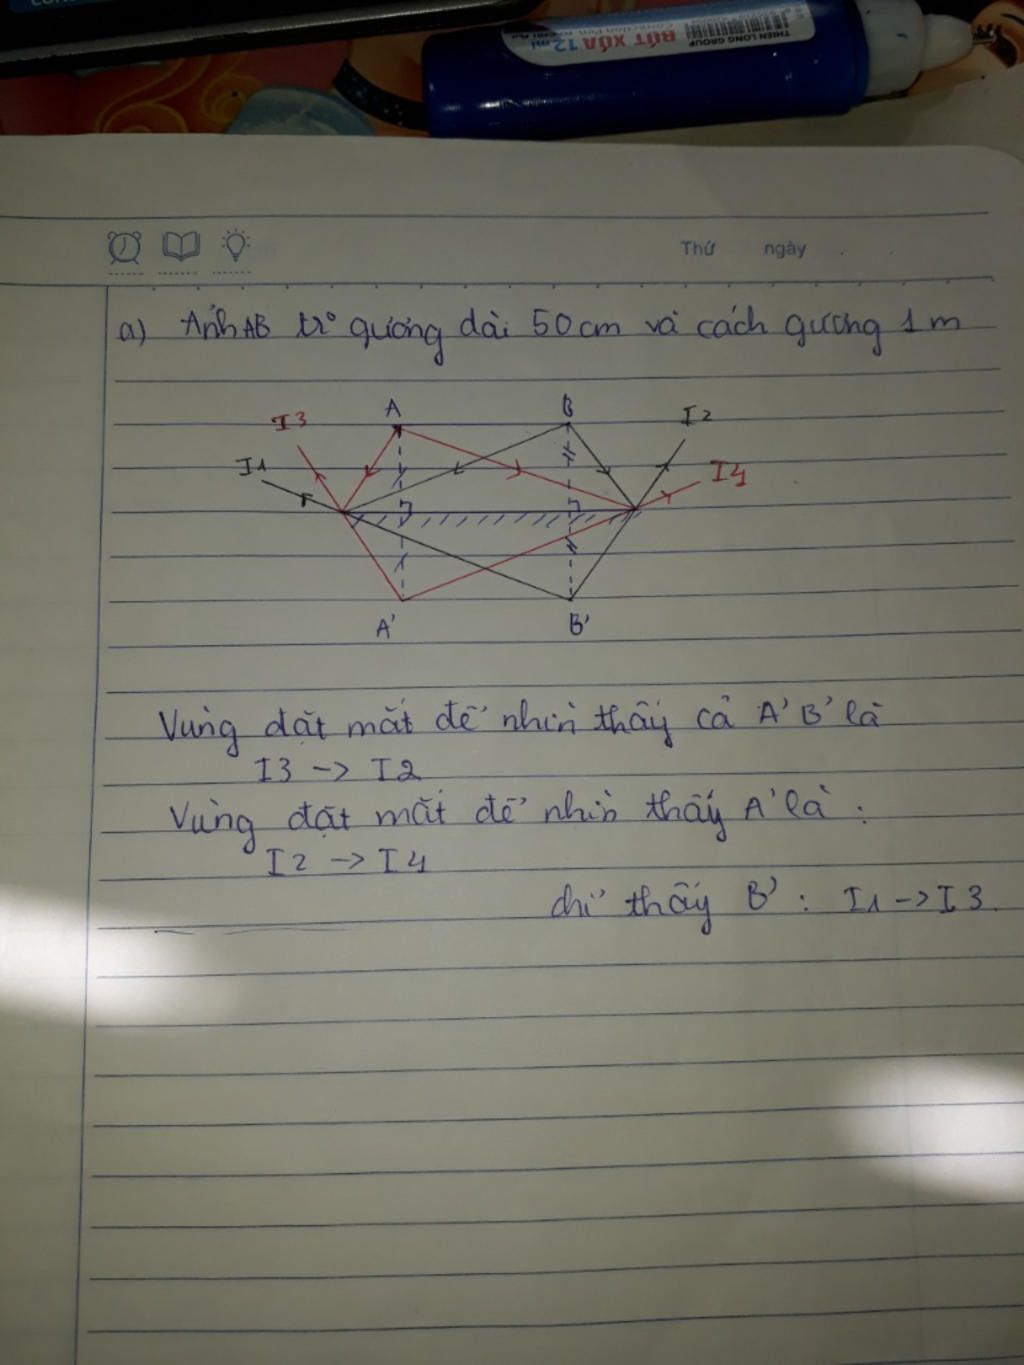 THIEN LONG GROUP
BÚT XÓA 12ml
Correction Pen
Thứ ngày
a) Ảnh AB từ gương dài 50cm và cách gương 1m
I3 A B I2
I1 I4
A' B'
Vùng đặt mắt để nhìn thấy cả A'B' là
I3 -> I2
Vùng đặt mắt để nhìn thấy A' là :
I2 -> I4
chỉ thấy B' : I1 -> I3.